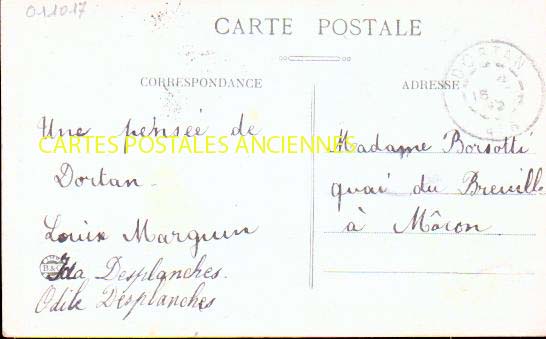 011017
CARTE POSTALE
CORRESPONDANCE
ADRESSE
DORTAN
Une pensée de
Dortan
CARTES POSTALES ANCIENNES
Madame Borsotti
quai du Breuille
à Mâcon
Louise
Ida Desplanches.
Odile Desplanches
B&G